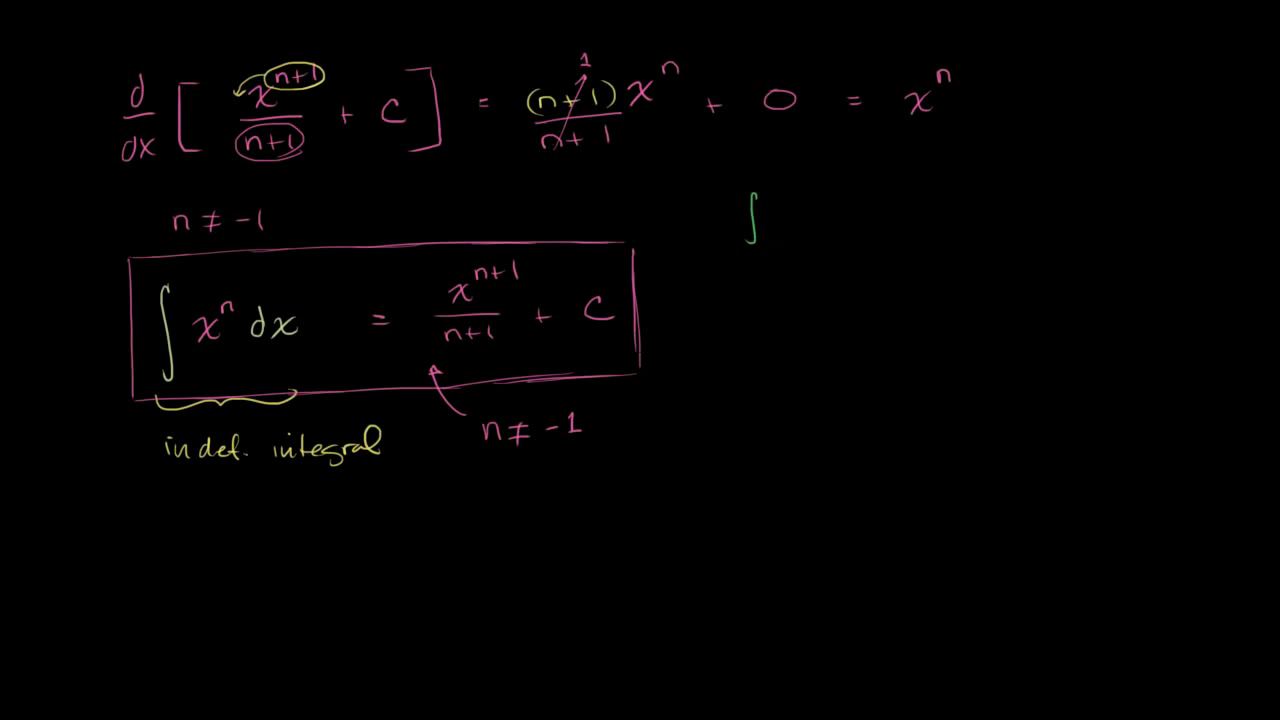 d/dx [ x^(n+1)/(n+1) + C ] = (n+1)x^n/(n+1) 1 + 0 = x^n
n ≠ -1
∫
∫ x^n dx = x^(n+1)/(n+1) + C
indef. integral
n ≠ -1